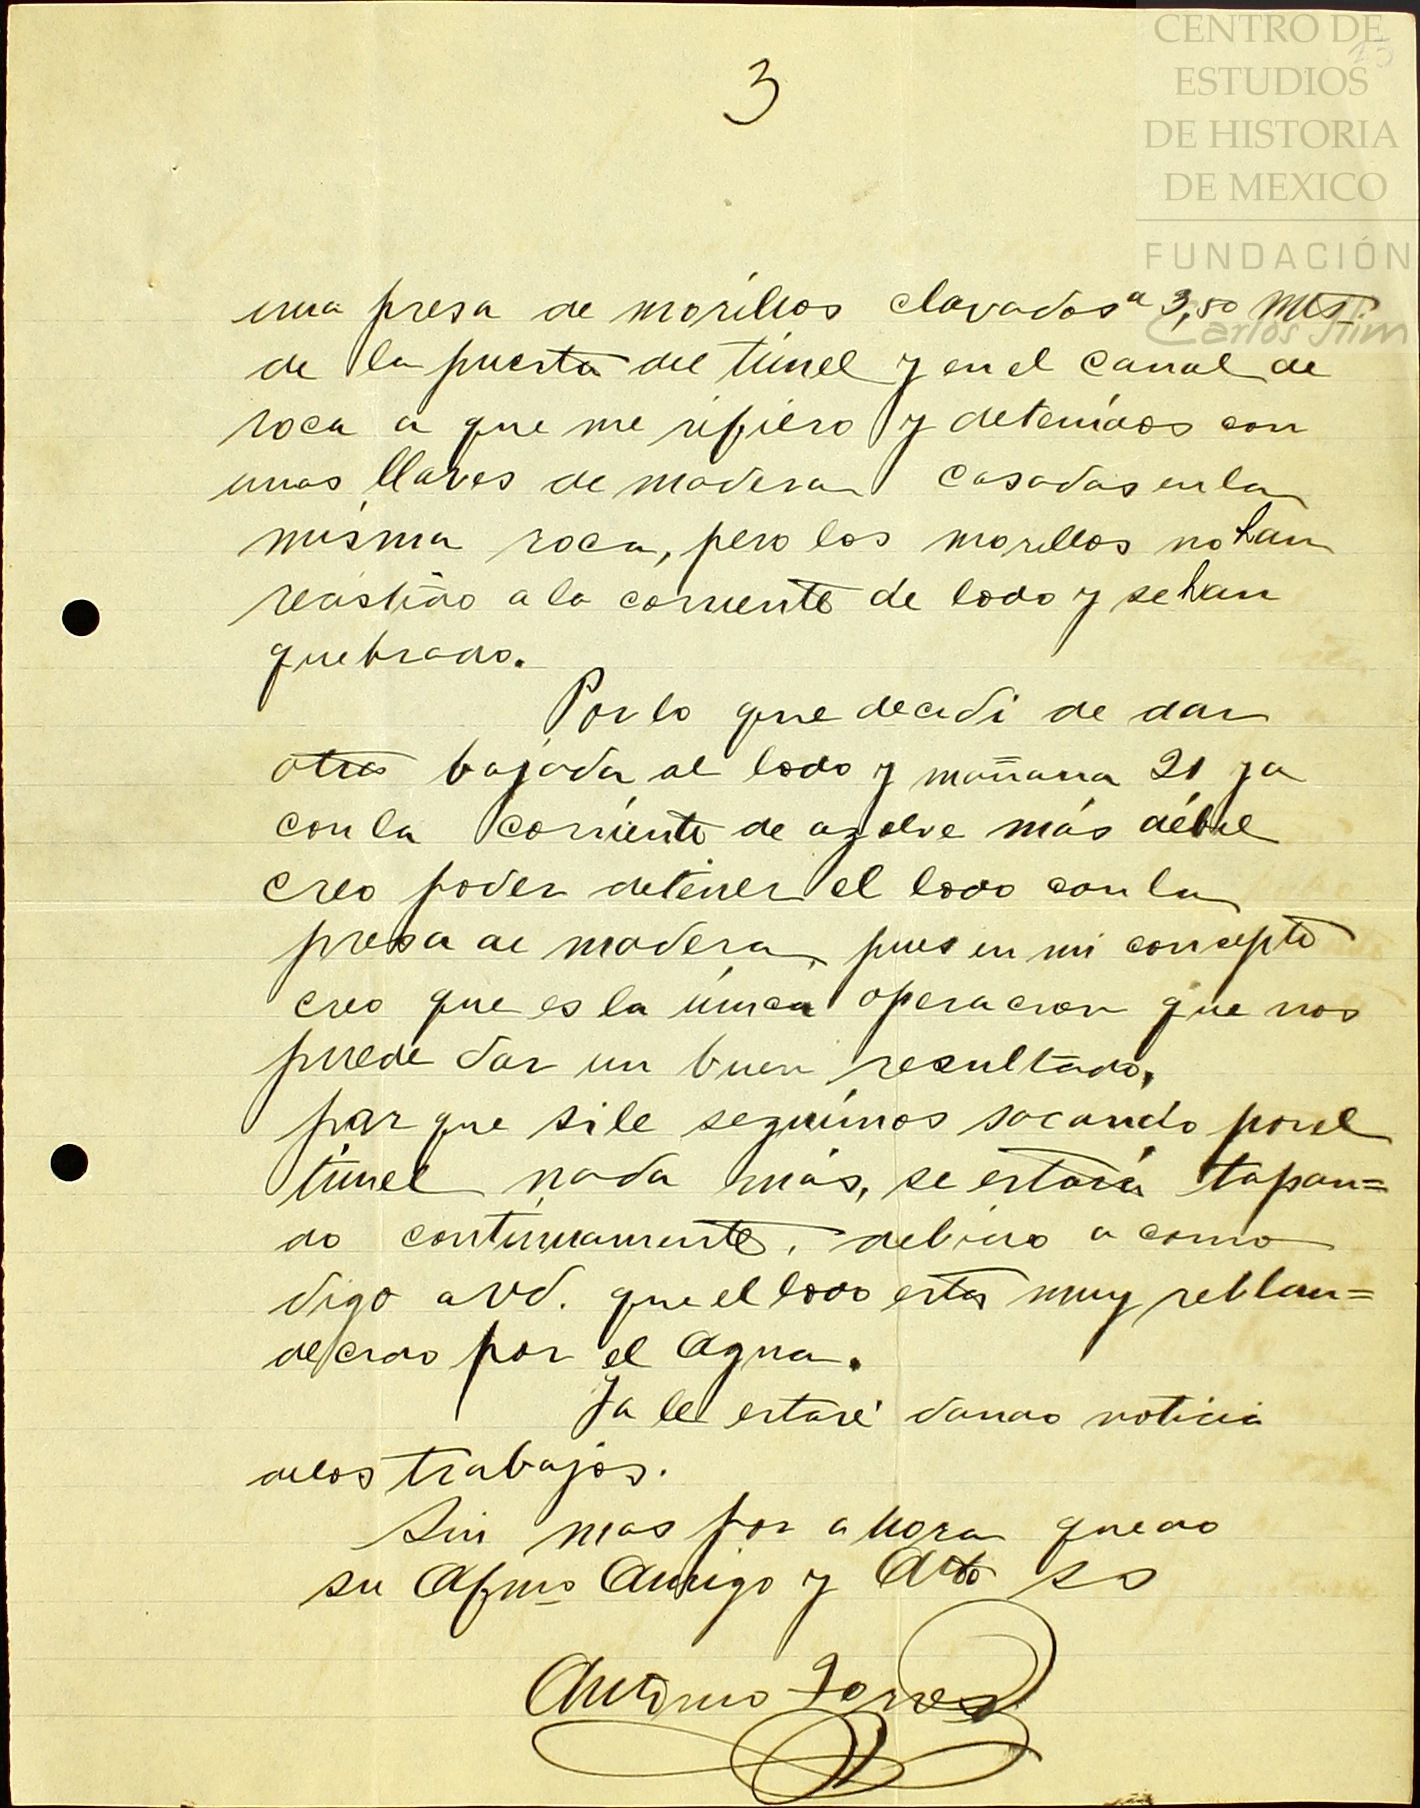 CENTRO DE
ESTUDIOS
DE HISTORIA
DE MEXICO
FUNDACIÓN
Carlos Slim
3
una presa de morillos clavados a 3,50 mts.
de la puerta del túnel y en el canal de
roca a que me refiero y detenidos con
unas llaves de madera casadas en la
misma roca, pero los morillos no han
resistido a la corriente de lodo y se han
quebrado.
Por lo que decidi de dar
otra bajada al lodo y mañana 21 ya
con la corriente de azolve más débil
creo poder detener el lodo con la
presa de madera, pues en mi concepto
creo que es la única operacion que nos
puede dar un buen resultado,
por que si le seguimos sacando por el
túnel nada más, se estará tapan=
do continuamente, debido a como
digo a Vd. que el lodo esta muy reblan=
decido por el Agua.
Ya le estaré dando noticia
de los trabajos.
Sin mas por ahora quedo
su Afmo Amigo y Atto S S
Antonio Torres